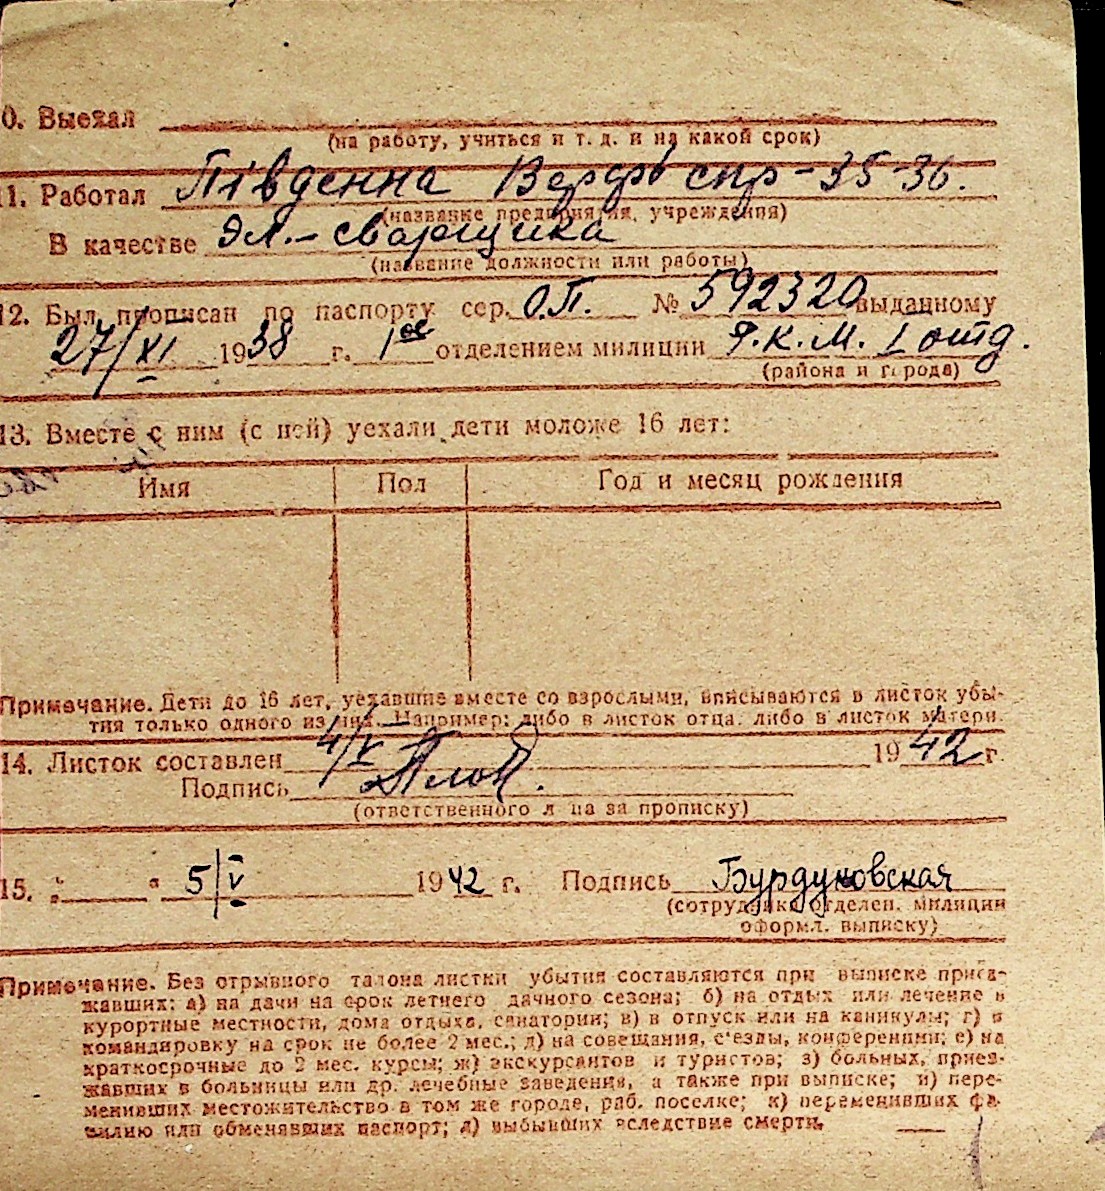 0. Выехал
(на работу, учиться и т. д. и на какой срок)
11. Работал Південна Верфь спр-35-36.
(название предприятия, учреждения)
В качестве Эл.-сварщика
(название должности или работы)
12. Был прописан по паспорту сер. О.П. № 592320 выданному
27/XI 1938 г. 1ое отделением милиции Р.К.М. I отд.
(района и города)
13. Вместе с ним (с ней) уехали дети моложе 16 лет:
Имя Пол Год и месяц рождения
Примечание. Дети до 16 лет, уехавшие вместе со взрослыми, вписываются в листок убы-
тия только одного из них. Например: либо в листок отца, либо в листок матери.
14. Листок составлен 4/V 1942 г.
Подпись
(ответственного лица за прописку)
15. " " 5/V 1942 г. Подпись Бурдуковская
(сотрудника отделен. милиции
оформл. выписку)
Примечание. Без отрывного талона листки убытия составляются при выписке приез-
жавших: а) на дачи на срок летнего дачного сезона; б) на отдых или лечение в
курортные местности, дома отдыха, санатории; в) в отпуск или на каникулы; г) в
командировку на срок не более 2 мес.; д) на совещания, с'езды, конференции; е) на
краткосрочные до 2 мес. курсы; ж) экскурсантов и туристов; з) больных, приез-
жавших в больницы или др. лечебные заведения, а также при выписке; и) пере-
менивших местожительство в том же городе, раб. поселке; к) переменивших фа-
милию или обменявших паспорт; л) выбывших вследствие смерти.